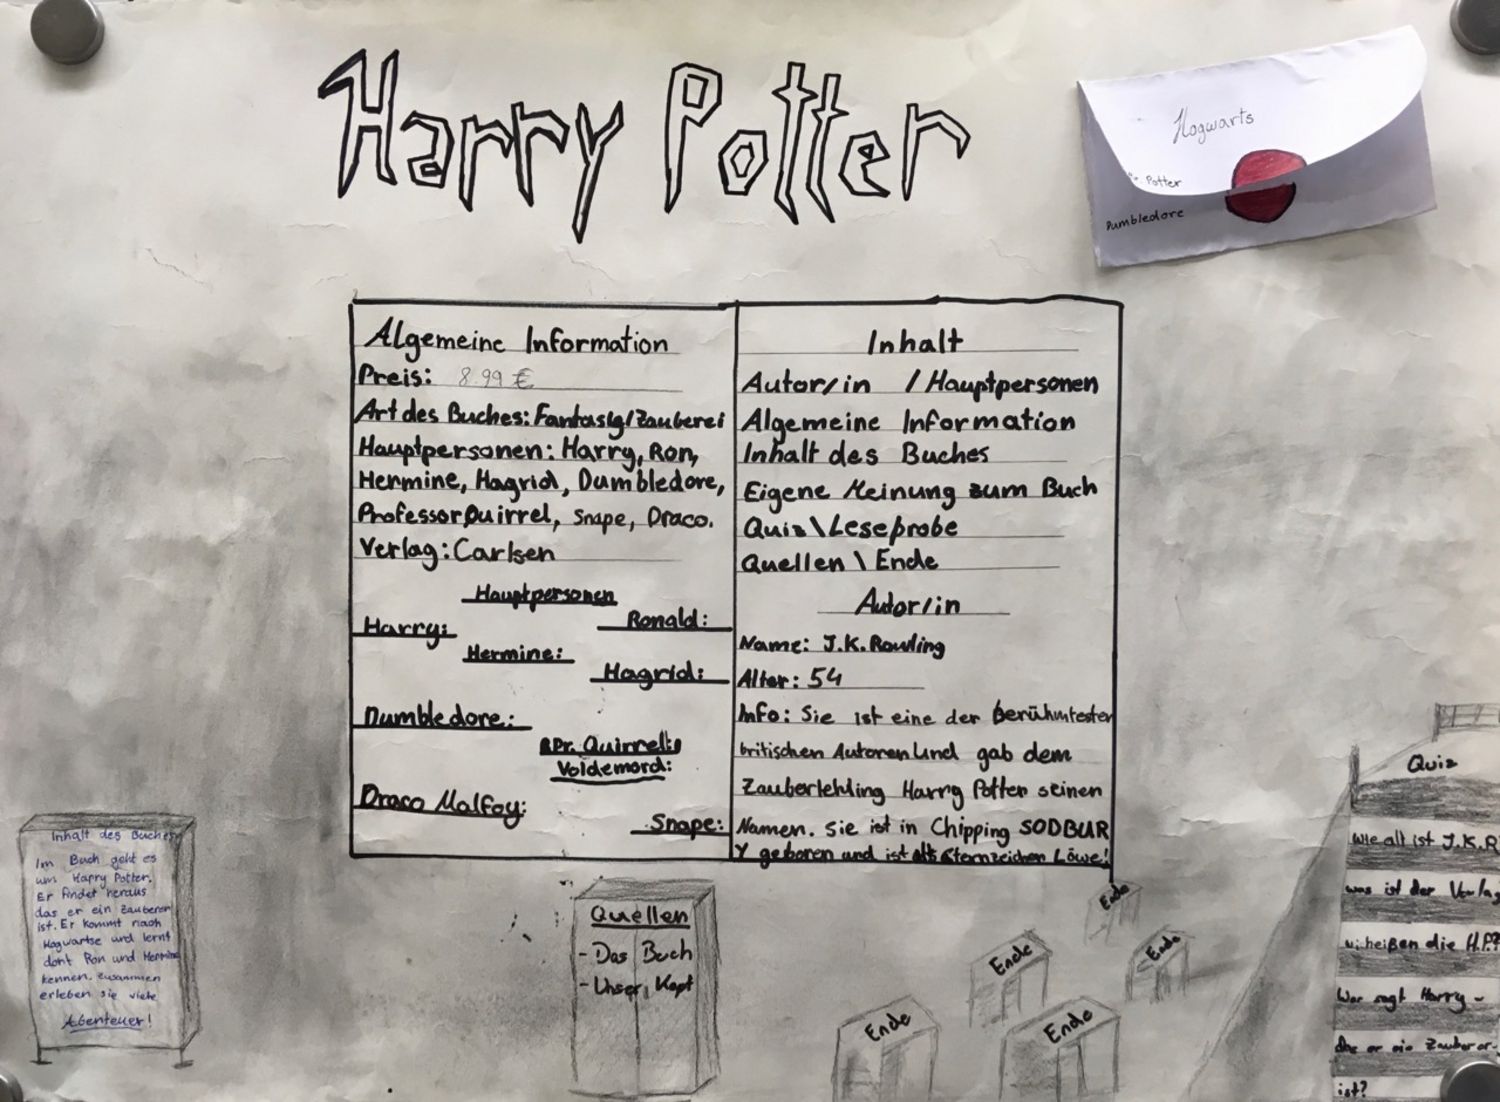 Harry Potter
Hogwarts
Potter
Dumbledore
Algemeine Information
Preis: 8.99 €
Art des Buches: Fantasy/Zauberei
Hauptpersonen: Harry, Ron,
Hermine, Hagrid, Dumbledore,
Professor Quirrel, Snape, Draco.
Verlag: Carlsen
Hauptpersonen
Ronald:
Harry:
Hermine:
Hagrid:
Dumbledore:
Pr. Quirrell
Voldemord:
Draco Malfoy:
Snape:
Inhalt
Autor/in / Hauptpersonen
Algemeine Information
Inhalt des Buches
Eigene Meinung zum Buch
Quiz\Leseprobe
Quellen \ Ende
Autor/in
Name: J.K. Rowling
Alter: 54
Info: Sie ist eine der berühmtesten
britischen Autoren und gab dem
Zauberlehling Harry Potter seinen
Namen. Sie ist in Chipping SODBUR
Y geboren und ist als Sternzeichen Löwe!
Inhalt des Buches
Im Buch geht es
um Harry Potter.
Er findet heraus
das er ein Zauberer
ist. Er kommt nach
Hogwartse und lernt
dort Ron und Hermine
kennen. Zusammen
erleben sie viele
Abenteuer!
Quellen
- Das Buch
- Unser Kopf
Ende
Ende
Ende
Ende
Ende
Quiz
Wie alt ist J.K.R
was ist der Verlag
wi heißen die H.P?
Wer sagt Harry -
das er ein Zauberer-
ist?